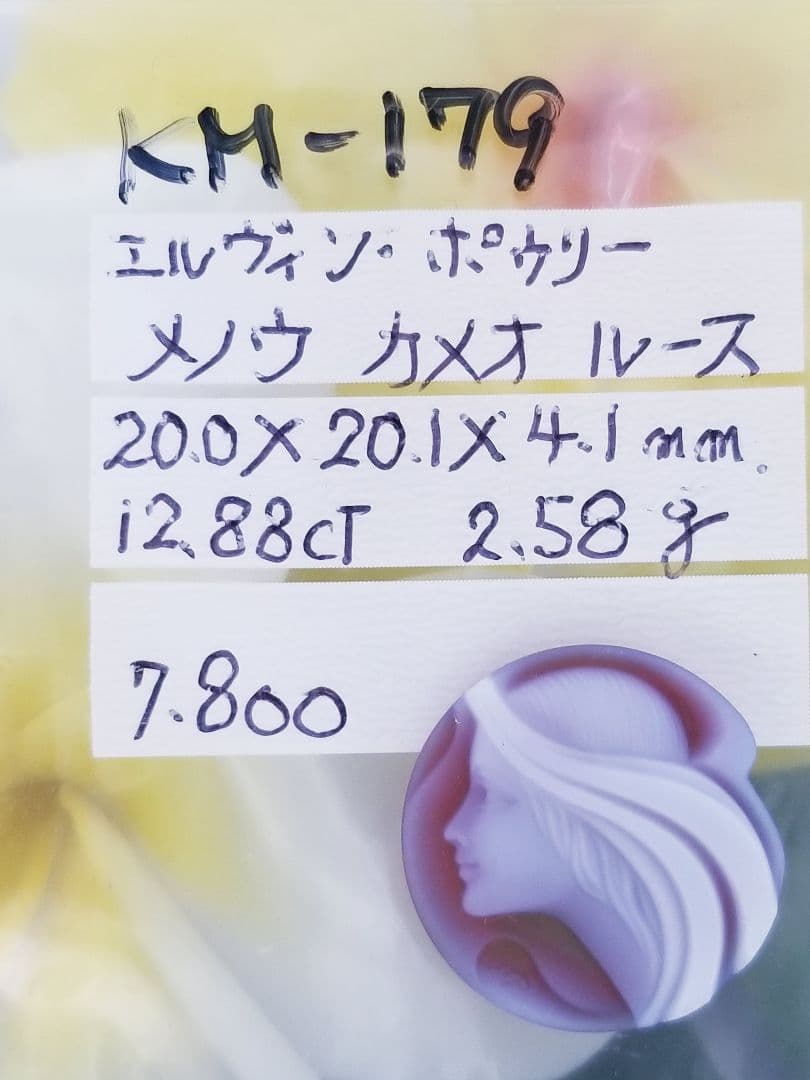 KM-179
エルヴィン・ポウリー
メノウ カメオ ルース
20.0×20.1×4.1mm.
12.88cT 2.58g
7.800